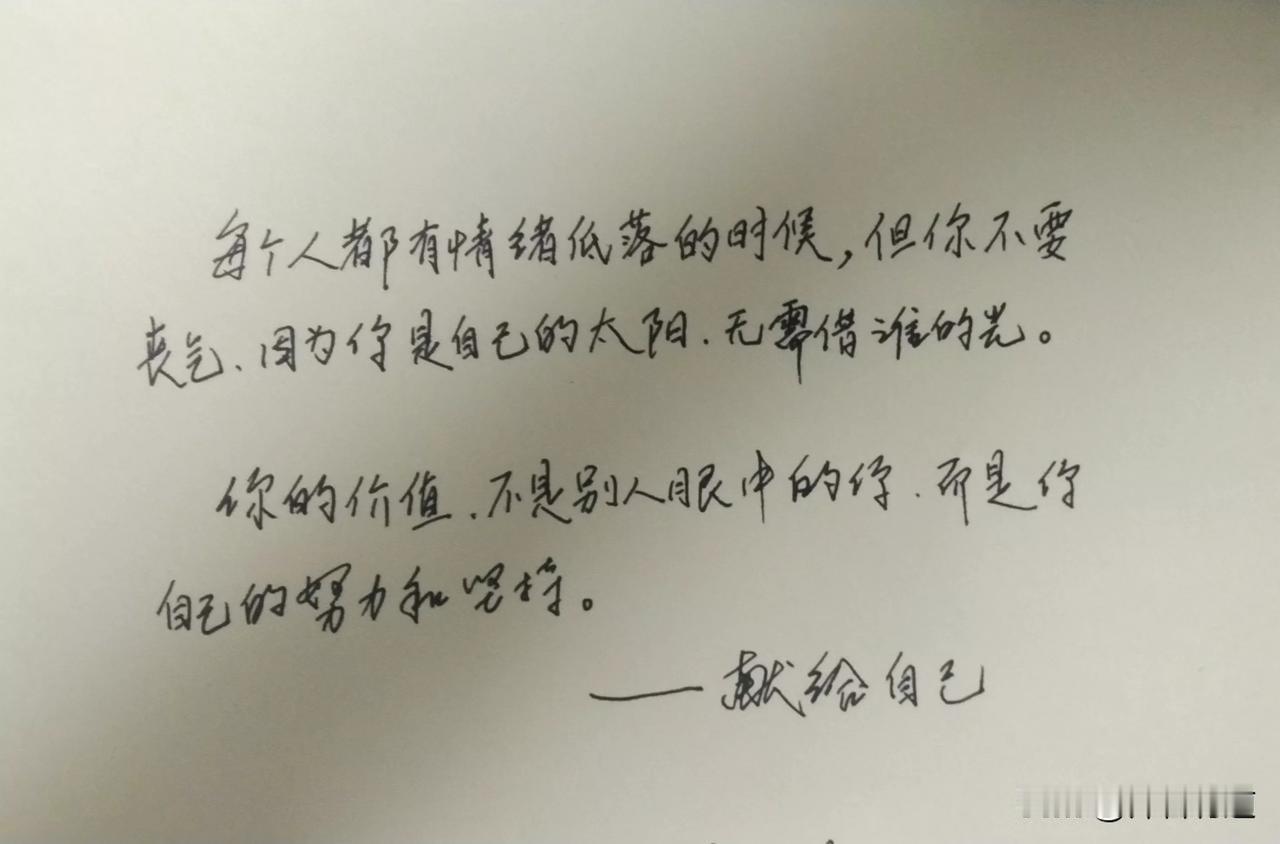 每个人都有情绪低落的时候，但你不要
丧气、因为你是自己的太阳、无需借谁的光。
你的价值、不是别人眼中的你、而是你
自己的努力和坚持。
——献给自己